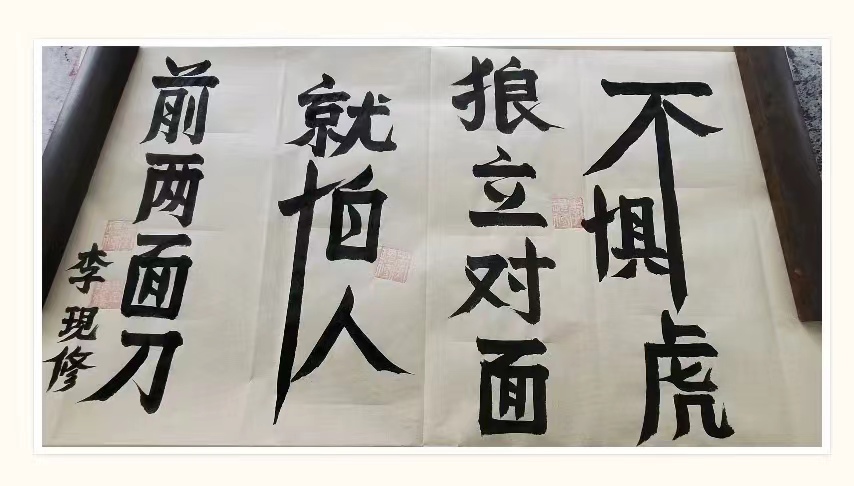 不惧虎
狼立对面
就怕人
前两面刀
李现修